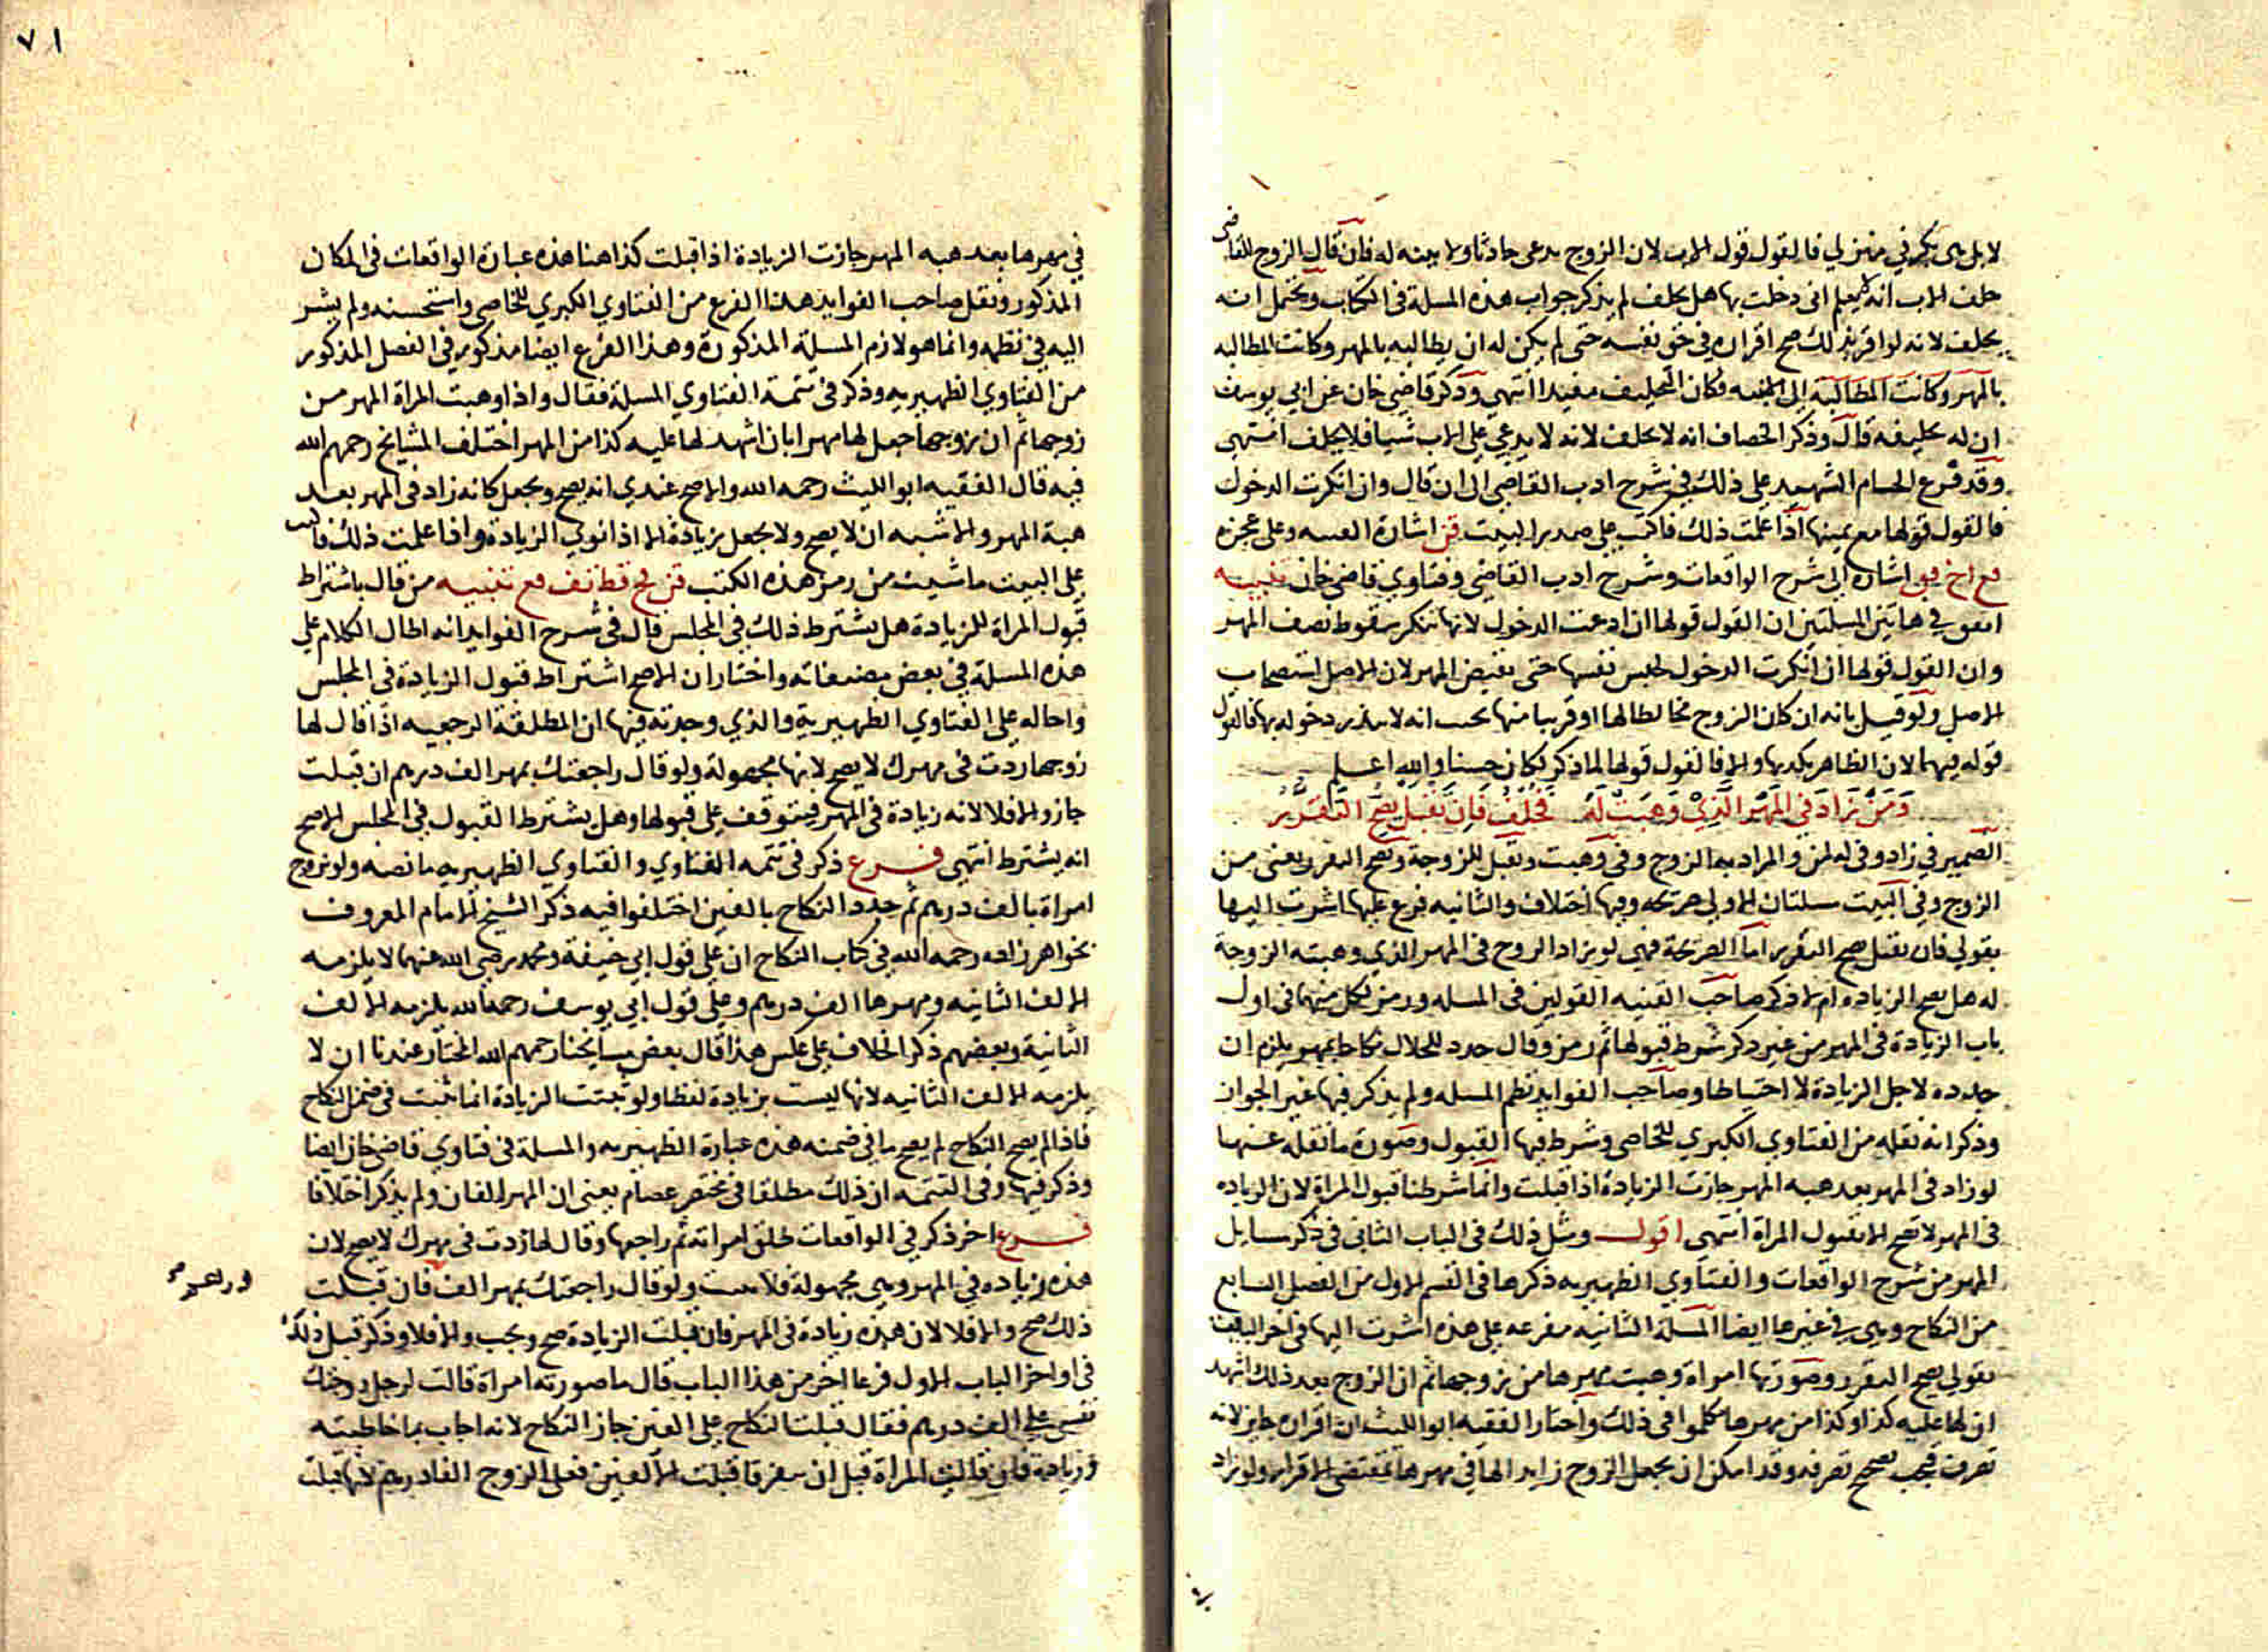 لا بل هى بكر في منزلي فالقول قول الاب لان الزوج يدعى حادثا ولا بينه له فان قال الزوج للقاضى
حلف الاب انه لا يعلم انى دخلت بها هل يحلف لم يذكر جواب هذه المسلة فى الكتاب ويحتمل انه
يحلف لانه لو اقر بذلك صح اقراره في حق نفسه حتى لم يكن له ان يطالبه بالمهر وكانت المطالبه
بالمهر وكانت المطالبة الى ابنته فكان التحليف مفيدا انتهى وذكر قاضى خان عن ابي يوسف
ان له تحليفه قال وذكر الخصاف انه لا يحلف لانه لا يدعى على الاب شيا فلا يحلف انتهى
وقد فرع الحسام الشهيد على ذلك في شرح ادب القاضى الى ان قال وان انكرت الدخول
فالقول قولها مع يمينها اذا علمت ذلك فاكتب على صدر البيت قن اشارة الى القنيه وعلى عجزه
فع اخ فق اشاره الى شرح الواقعات وشرح ادب القاضى وفتاوي قاضى خان تنبيه
اتفق في هاتين المسلتين ان القول قولها ان ادعت الدخول لانها تنكر سقوط نصف المهر
وان القول قولها ان انكرت الدخول لحبس نفسها حتى تقبض المهر لان الاصل استصحاب
الاصل ولو قيل بانه ان كان الزوج مخالطا لها او قريبا منها بحيث انه لا يتعذر دخوله بها فالقول
قوله فيهما لان الظاهر يكذبها والا فالقول قولها لما ذكر لكان حسنا والله اعلم
وَمَن زَادَ فى المَهْر الَّذِي وَهَبَتْ لَهُ فَخُلْف فَاِن تَقْبَل يَصِحّ التَّقَرُّر
الضمير في زاد وفى له لمن والمراد به الزوج وفى وهبت وتقبل للزوجة ويصح التقرر يعنى من
الزوج وفي البيت مسلتان الاولى صريحه وفيها اختلاف والثانيه فرع عليها اشرت اليها
بقولي فان تقبل صح التقرر اما الصريحة فهي لو زاد الزوج فى المهر الذي وهبته الزوجة
له هل يصح الزياده ام لا ذكر صاحب القنيه القولين فى المسله ورمز لكل منهما فى اول
باب الزيادة فى المهر من غير ذكر شرط قبولها ثم رمز وقال جدد للحلال نكاحا بمهر يلزم ان
جدده لاجل الزيادة لا احتياطا وصاحب الفوايد نظم المسله ولم يذكر فيها غير الجواز
وذكر انه نقله من الفتاوي الكبري للخاصى وشرط فيها القبول وصورة ما نقله عنها
لو زاد فى المهر بعد هبه المهر جازت الزيادة اذا قبلت وانما شرطنا قبول المراة لان الزياده
فى المهر لا تصح الا بقبول المراة انتهى اقول ومثل ذلك فى الباب الثانى فى ذكر مسايل
المهر من شرح الواقعات والفتاوي الظهيريه ذكرها فى القسم الاول من الفصل السابع
من النكاح وهى في غيرها ايضا المسلة الثانيه مفرعه على هذه اشرت اليها فى اخر البيت
بقولي يصح التقرر وصورتها امراة وهبت مهرها من زوجها ثم ان الزوج بعد ذلك اشهد
ان لها عليه كذا وكذا من مهرها تكلموا فى ذلك واختار الفقيه ابو الليث ان اقراره جايز لانه
تصرف فيجب تصحيح تصرفه وقد امكن ان يجعل الزوج زايدا لها في مهرها بمقتضى الاقرار ولو زاد
٧١
في مهرها بعد هبه المهر جازت الزيادة اذا قبلت كذا هنا هذه عبارة الواقعات فى المكان
المذكور ونقل صاحب الفوايد هذا الفرع من الفتاوي الكبري للخاصى واستحسنه ولم يشر
اليه في نظمه وانما هو لازم المسلة المذكورة وهذا الفرع ايضا مذكور في الفصل المذكور
من الفتاوي الظهيريه وذكر فى تتمة الفتاوي المسلة فقال واذا وهبت المراة المهر من
زوجها ثم ان زوجها جعل لها مهرا بان اشهد لها عليه كذا من المهر اختلف المشايخ رحمهم الله
فيه قال الفقيه ابو الليث رحمه الله والاصح عندي انه يصح ويجعل كانه زاد فى المهر بعد
هبة المهر والاشبه ان لا يصح ولا يجعل زيادة الا اذا نوي الزيادة واذا علمت ذلك فاكتب
على البيت ما شيت من رمز هذه الكتب قن فع قظ تف فع تنبيه من قال باشتراط
قبول المراة للزيادة هل يشترط ذلك فى المجلس قال فى شرح الفوايد انه اطال الكلام على
هذه المسلة في بعض مصنفاته واختار ان الاصح اشتراط قبول الزيادة فى المجلس
واحاله على الفتاوي الظهيرية والذي وجدته فيها ان المطلقة الرجعيه اذا قال لها
زوجها زدت فى مهرك لا يصح لانها مجهولة ولو قال راجعتك بمهر الف درهم ان قبلت
جاز والا فلا لانه زيادة فى المهر فيتوقف على قبولها وهل يشترط القبول في المجلس الاصح
انه يشترط انتهى فرع ذكر فى تتمه الفتاوي والفتاوي الظهيريه ما نصه ولو تزوج
امراة بالف درهم ثم جدد النكاح بالفين اختلفوا فيه ذكر الشيخ الامام المعروف
بخواهر زاده رحمه الله فى كتاب النكاح ان على قول ابي حنيفة ومحمد رضي الله عنهما لا يلزمه
الالف الثانيه ومهرها الف درهم وعلى قول ابي يوسف رحمه الله يلزمه الالف
الثانية وبعضهم ذكر الخلاف على عكس هذا قال بعض مشايخنا رحمهم الله المختار عندنا ان لا
يلزمه الالف الثانيه لانها ليست بزيادة لفظا ولو ثبتت الزيادة انما تثبت فى ضمن النكاح
فاذا لم يصح النكاح لم يصح ما فى ضمنه هذه عبارة الظهيريه والمسلة فى فتاوي قاضى خان ايضا
وذكر فيها وفى التتمه ان ذلك مطلقا فى مختصر عصام يعنى ان المهر الفان ولم يذكر اختلافا
فرع اخر ذكر في الواقعات طلق امراته ثم راجعها وقال لها زدت فى مهرك لا يصح لان
هذه زياده في المهر وهى مجهولة فلا تثبت ولو قال راجعتك بمهر الف فان قبلت
ذلك صح والا فلا لان هذه زيادة فى المهر فان قبلت الزيادة صح ويجب والا فلا وذكر قبل ذلك
فى اواخر الباب الاول فرعا اخر من هذا الباب قال ما صورته امراة قالت لرجل زوجتك
نفسى على الف درهم فقال قبلت النكاح على الفين جاز النكاح لانه اجاب بما خاطبته
وزيادة فان قالت المراة قبل ان يفترقا قبلت الالفين فعلى الزوج الفا درهم لانها قبلت